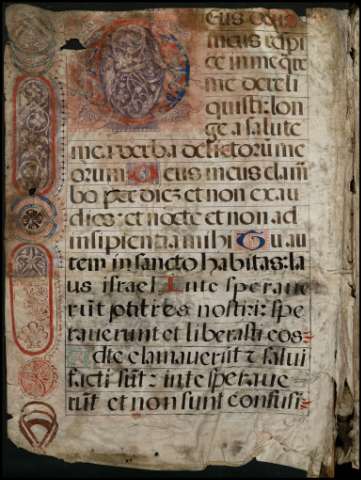 Deus deus
meus respi
ce in me qre
me dereli
quisti: lon
ge a salute
mea verba delictorum me
orum Deus meus clam̄
bo per diez et non exau
dies: et nocte et non ad
insipientia mihi Tu au
tem in sancto habitas: la
us israel In te sperave
rūt patres nostri: spe
raverunt et liberasti eos
Ad te clamaverūt z salui
facti sūt: in te sperave
rūt et non sunt confusi